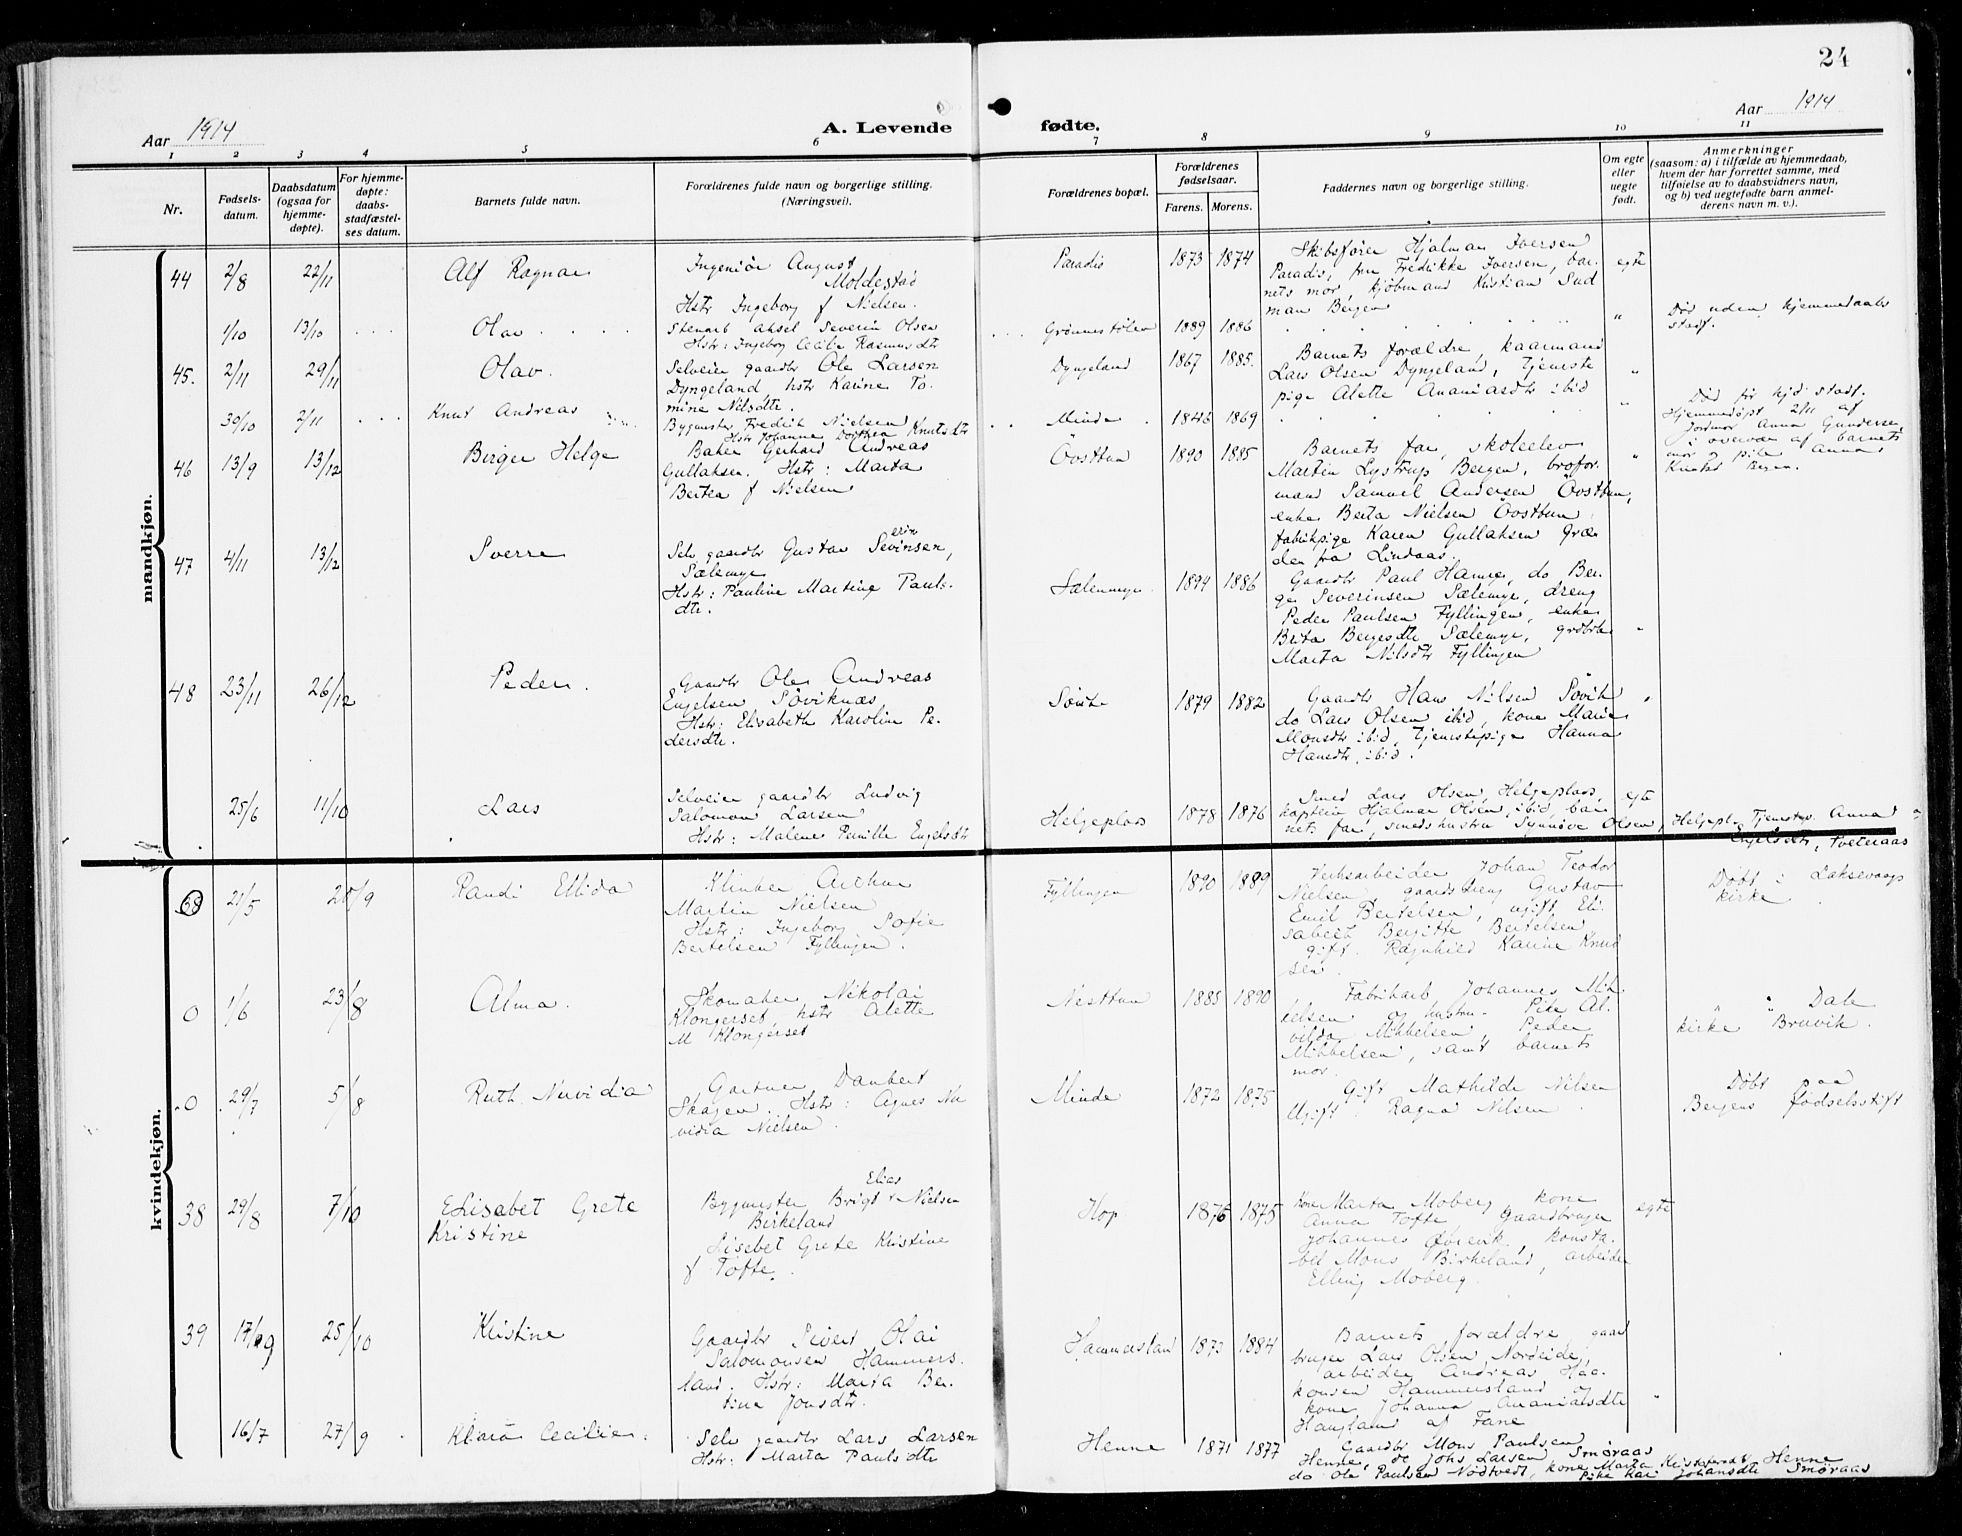 24
Aar 1914
A. Levende fødte.
Aar 1914
1 2 3 4 5 6 7 8 9 10 11
Nr.
Fødsels-
datum.
Daabsdatum
(ogsaa for
hjemme-
døpte).
For hjemme-
døpte:
daabs-
stadfæstel-
ses datum.
Barnets fulde navn.
Forældrenes fulde navn og borgerlige stilling.
(Næringsvei).
Forældrenes bopæl.
Forældrenes
fødselsaar.
Farens. Morens.
Faddernes navn og borgerlige stilling.
Om egte
eller
uegte
født.
Anmerkninger
(saasom: a) i tilfælde av hjemmedaab,
hvem der har forrettet samme, med
tilføielse av to daabsvidners navn,
og b) ved uegtefødte barn anmel-
derens navn m. v.).
mandkjøn.
44 2/8 22/11 Alf Ragnar
Ingeniör August
Moldestad
Hstr Ingeborg f Nielsen.
Paradis 1873 1874
Skibsfører Hjalmar Iversen
Paradis, fru Fredrikke Iversen, bar-
nets mor, kjøbmand Kristian Sud
man Bergen
egte
1/10 13/10 Olav
Stenarb Aksel Severin Olsen
Hstr: Ingeborg Cecilie Rasmusdtr
Grønnestølen 1889 1886 "
Død uden hjemmedaabs
stadf.
45. 2/11 29/11 Olav.
Selveier gaardbr Ole Larsen
Dyngeland, hstr Karine To.
mine Nilsdtr.
Dyngeland 1867 1885.
Barnets forældre, kaarmand
Lars Olsen Dyngeland, tjeneste
pige Alette Ananiasdtr ibid
"
30/10 2/11 Knut Andreas
Bygmester Fredrik Nielsen
Hstr Johanne Dorthea Knutsdtr
Minde 1846 1869 "
Død før hjd stadf.
Hjemmedøpt 2/11 af
Jordmor Anna Gunderse,
i overvær af barnets
mor og pike Anna
Bergen.
46 13/9 13/12 Birger Helge
Baker Gerhard Andreas
Gullaksen. Hstr: Marta
Bertea f Nielsen
Övsttun 1890 1885
Barnets far, skoleelev
Martin Lystrup Bergen, brofor.
mand Samuel Andersen Övsttun,
enke Berta Nielsen Övsttun,
fabrikpige Karen Gullaksen Græ
den fra Lindaas.
"
47 4/11 13/12 Sverre
Selv gaardbr Gustav Sevinsen,
erin
Sælemyr
Hstr: Pauline Martine Pauls.
dtr.
Sælenmyr 1894 1886
Gaardbr Paul Hamre, do Ber-
ge Severinsen Sælemyr, dreng
Peder Paulsen Fyllingen, enke
Berta Bergesdtr Sælemyr, grdbrk
Marta Nilsdtr Fyllingen
"
48 23/11 26/12 Peder.
Gaardbr Ole Andreas
Engelsen Søviknæs
Hstr: Elisabeth Karoline Pe-
dersdtr.
Søvik 1879 1882
Gaardbr Hans Nilsen Søvik
do Lars Olsen ibid, kone Marie
Monsdtr ibid, tjenestepige Hanna
Hansdtr, ibid.
"
25/6 11/10 Lars
Selveier gaardbr Ludvig
Salomon Larsen
Hstr: Malene Pernille Engelsdtr
Helgeplass 1878 1876
Smed Lars Olsen, Helgeplass,
kaptein Hjalmar Olsen, ibid, bar
nets far, smedshustru Synnøve Olsen,
egte
Helgepl. Tjenstep. Anna
Engelsdtr, Tveteraas
kvindekjøn.
38 21/5 20/9 Randi Ellida
Klinker Arthur
Martin Nielsen
Hstr: Ingeborg Sofie
Bertelsen Fyllingen.
Fyllingen 1890 1889
Verksarbeider Johan Teodor
Nielsen gaardsdreng Gustav
Emil Bertelsen, ugift Eli.
sabeth Bergitte Bertelsen,
gift. Ragnhild Karine Knud
sen.
Döbt i Laksevaags
kirke.
0 1/6 23/8 Alma.
Skomaker Nikolai
Klongerset, hstr Alette
M Klongerset
Nesttun 1885 1890
Fabrikarb Johannes Mik.
kelsen og hustru. Pike Al.
vilda Mikkelsen, Peder
Mikkelsen, samt barnets
mor.
" " Dale
kirke Bruvik.
0 29/7 5/8 Ruth Nuvidia
Gartner Daubert
Skagen. Hstr: Agnes Nu
vidia Nielsen.
Minde 1872 1875
Gift Mathilde Nilsen
Ugift Ragna Nilsen
Döbt paa
Bergens fødselsstift
38 29/8 7/10 Elisabet Grete
Kristine
Elias
Bygmester Brigt Nielsen
Birkeland
Lisebet Grete Kristine
f Tofte.
Hop 1876 1875
Kone Marta Moberg, kone
Anna Tofte, Gaardbruger
Johannes Øvrevik, konsta.
bel Mons Birkeland, arbeider
Elling Moberg.
egte
39 17/9 25/10 Kristine
Gaardbr Sivert Olai
Salomonsen Hammers.
land. Hstr: Marta Ber-
tine Jonsdtr.
Hammersland 1873 1884
Barnets forældre, gaard
bruger Lars Olsen Nordeide,
arbeider Andreas Haa-
konsen Hammersland og
kone Johanna Ananiasdtr
Haugland af Fane
"
16/7 27/9 Klara Cecilie
Selv gaardbr Lars Larsen
Hstr: Marta Paulsdtr
Henne 1871 1877
Gaardbr Mons Paulsen
Henne, do Johs Larsen Smøraas
do Ole Paulsen Nødtvedt, kone Marta Kristofersdtr Henne
Pike Kari Johansdtr Smøraas